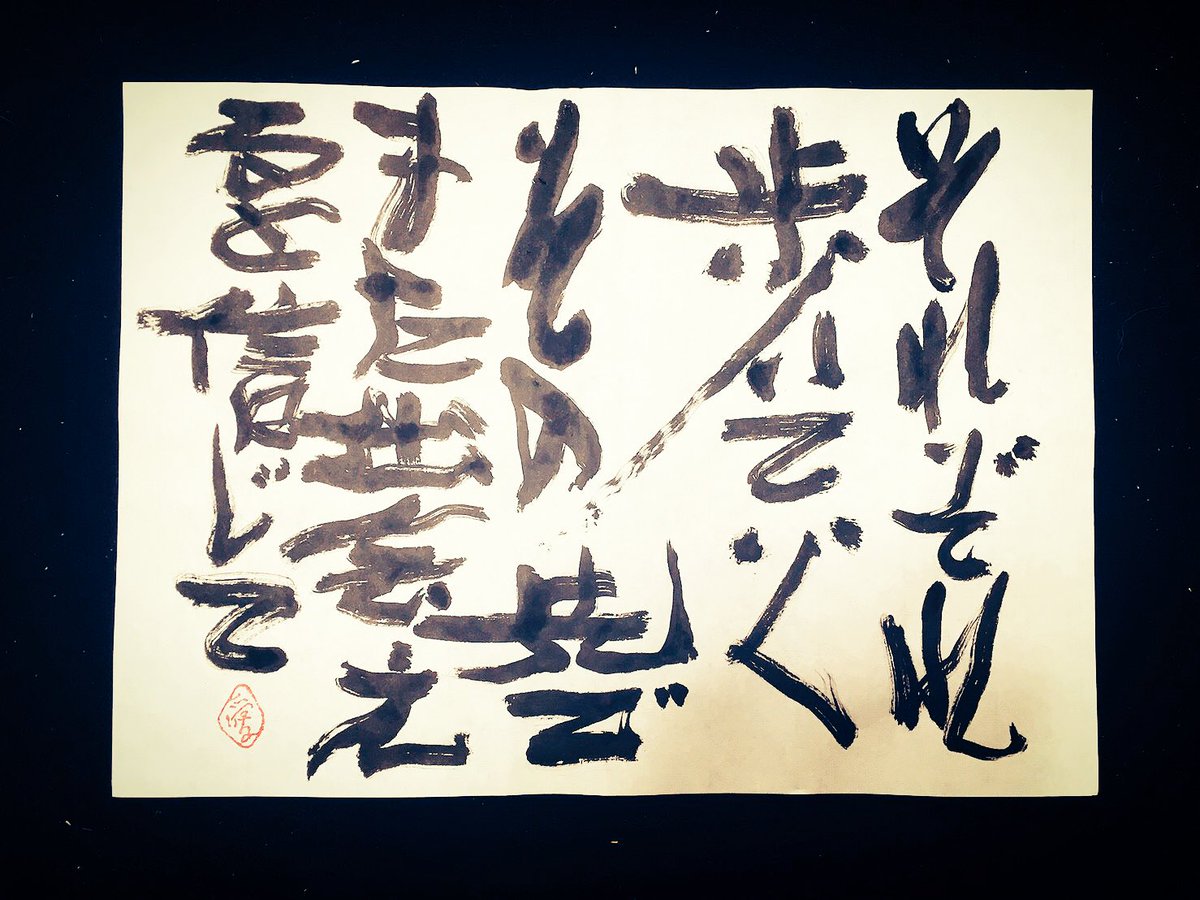 それぞれ
歩いてく
その先で
また出会え
ると信じて